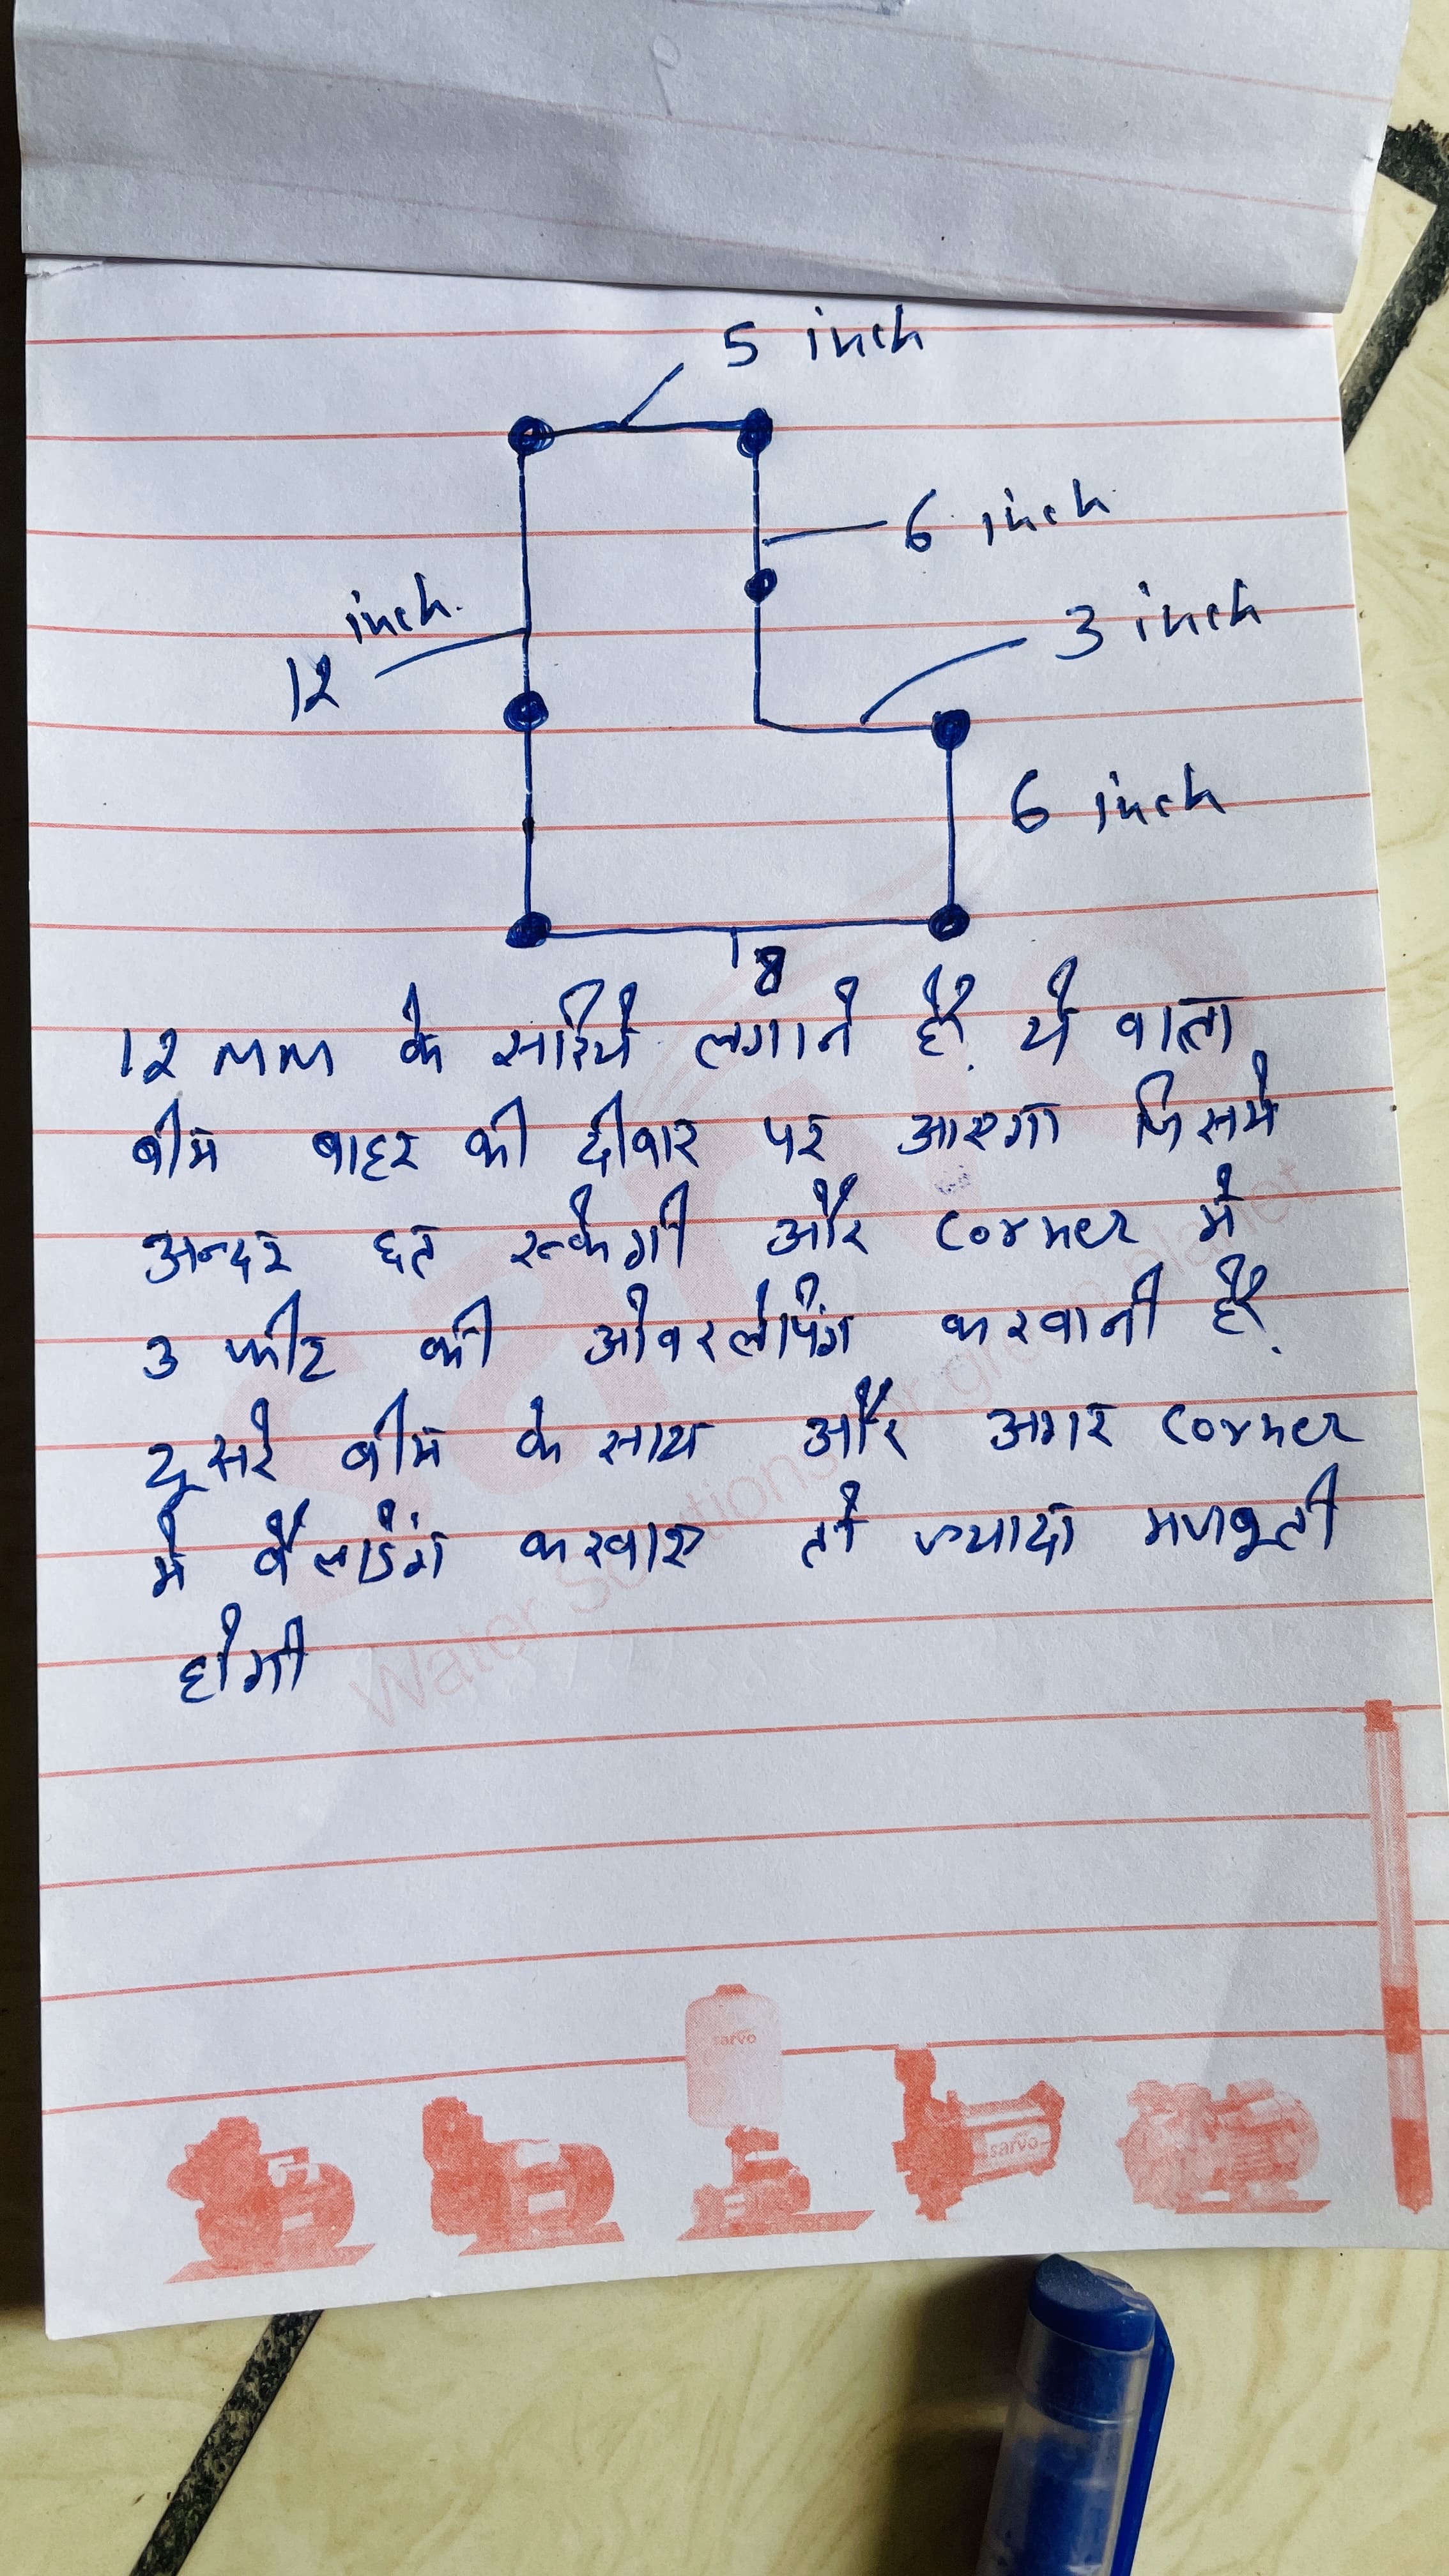 5 inch
6 inch
inch.
12
3 inch
6 inch
8
12 MM के सरिये लगाने है. ये वाला
बीम बाहर की दीवार पर आएगा जिसमे
अन्दर छत रूकेगी और corner मे
3 फीट की ओवरलेपिंग करवानी है.
दूसरे बीम के साथ और अगर corner
मे वैलडिंग करवाए तो ज्यादा मजबूती
होगी
Water Solutions for green planet
sarvo
sarvo